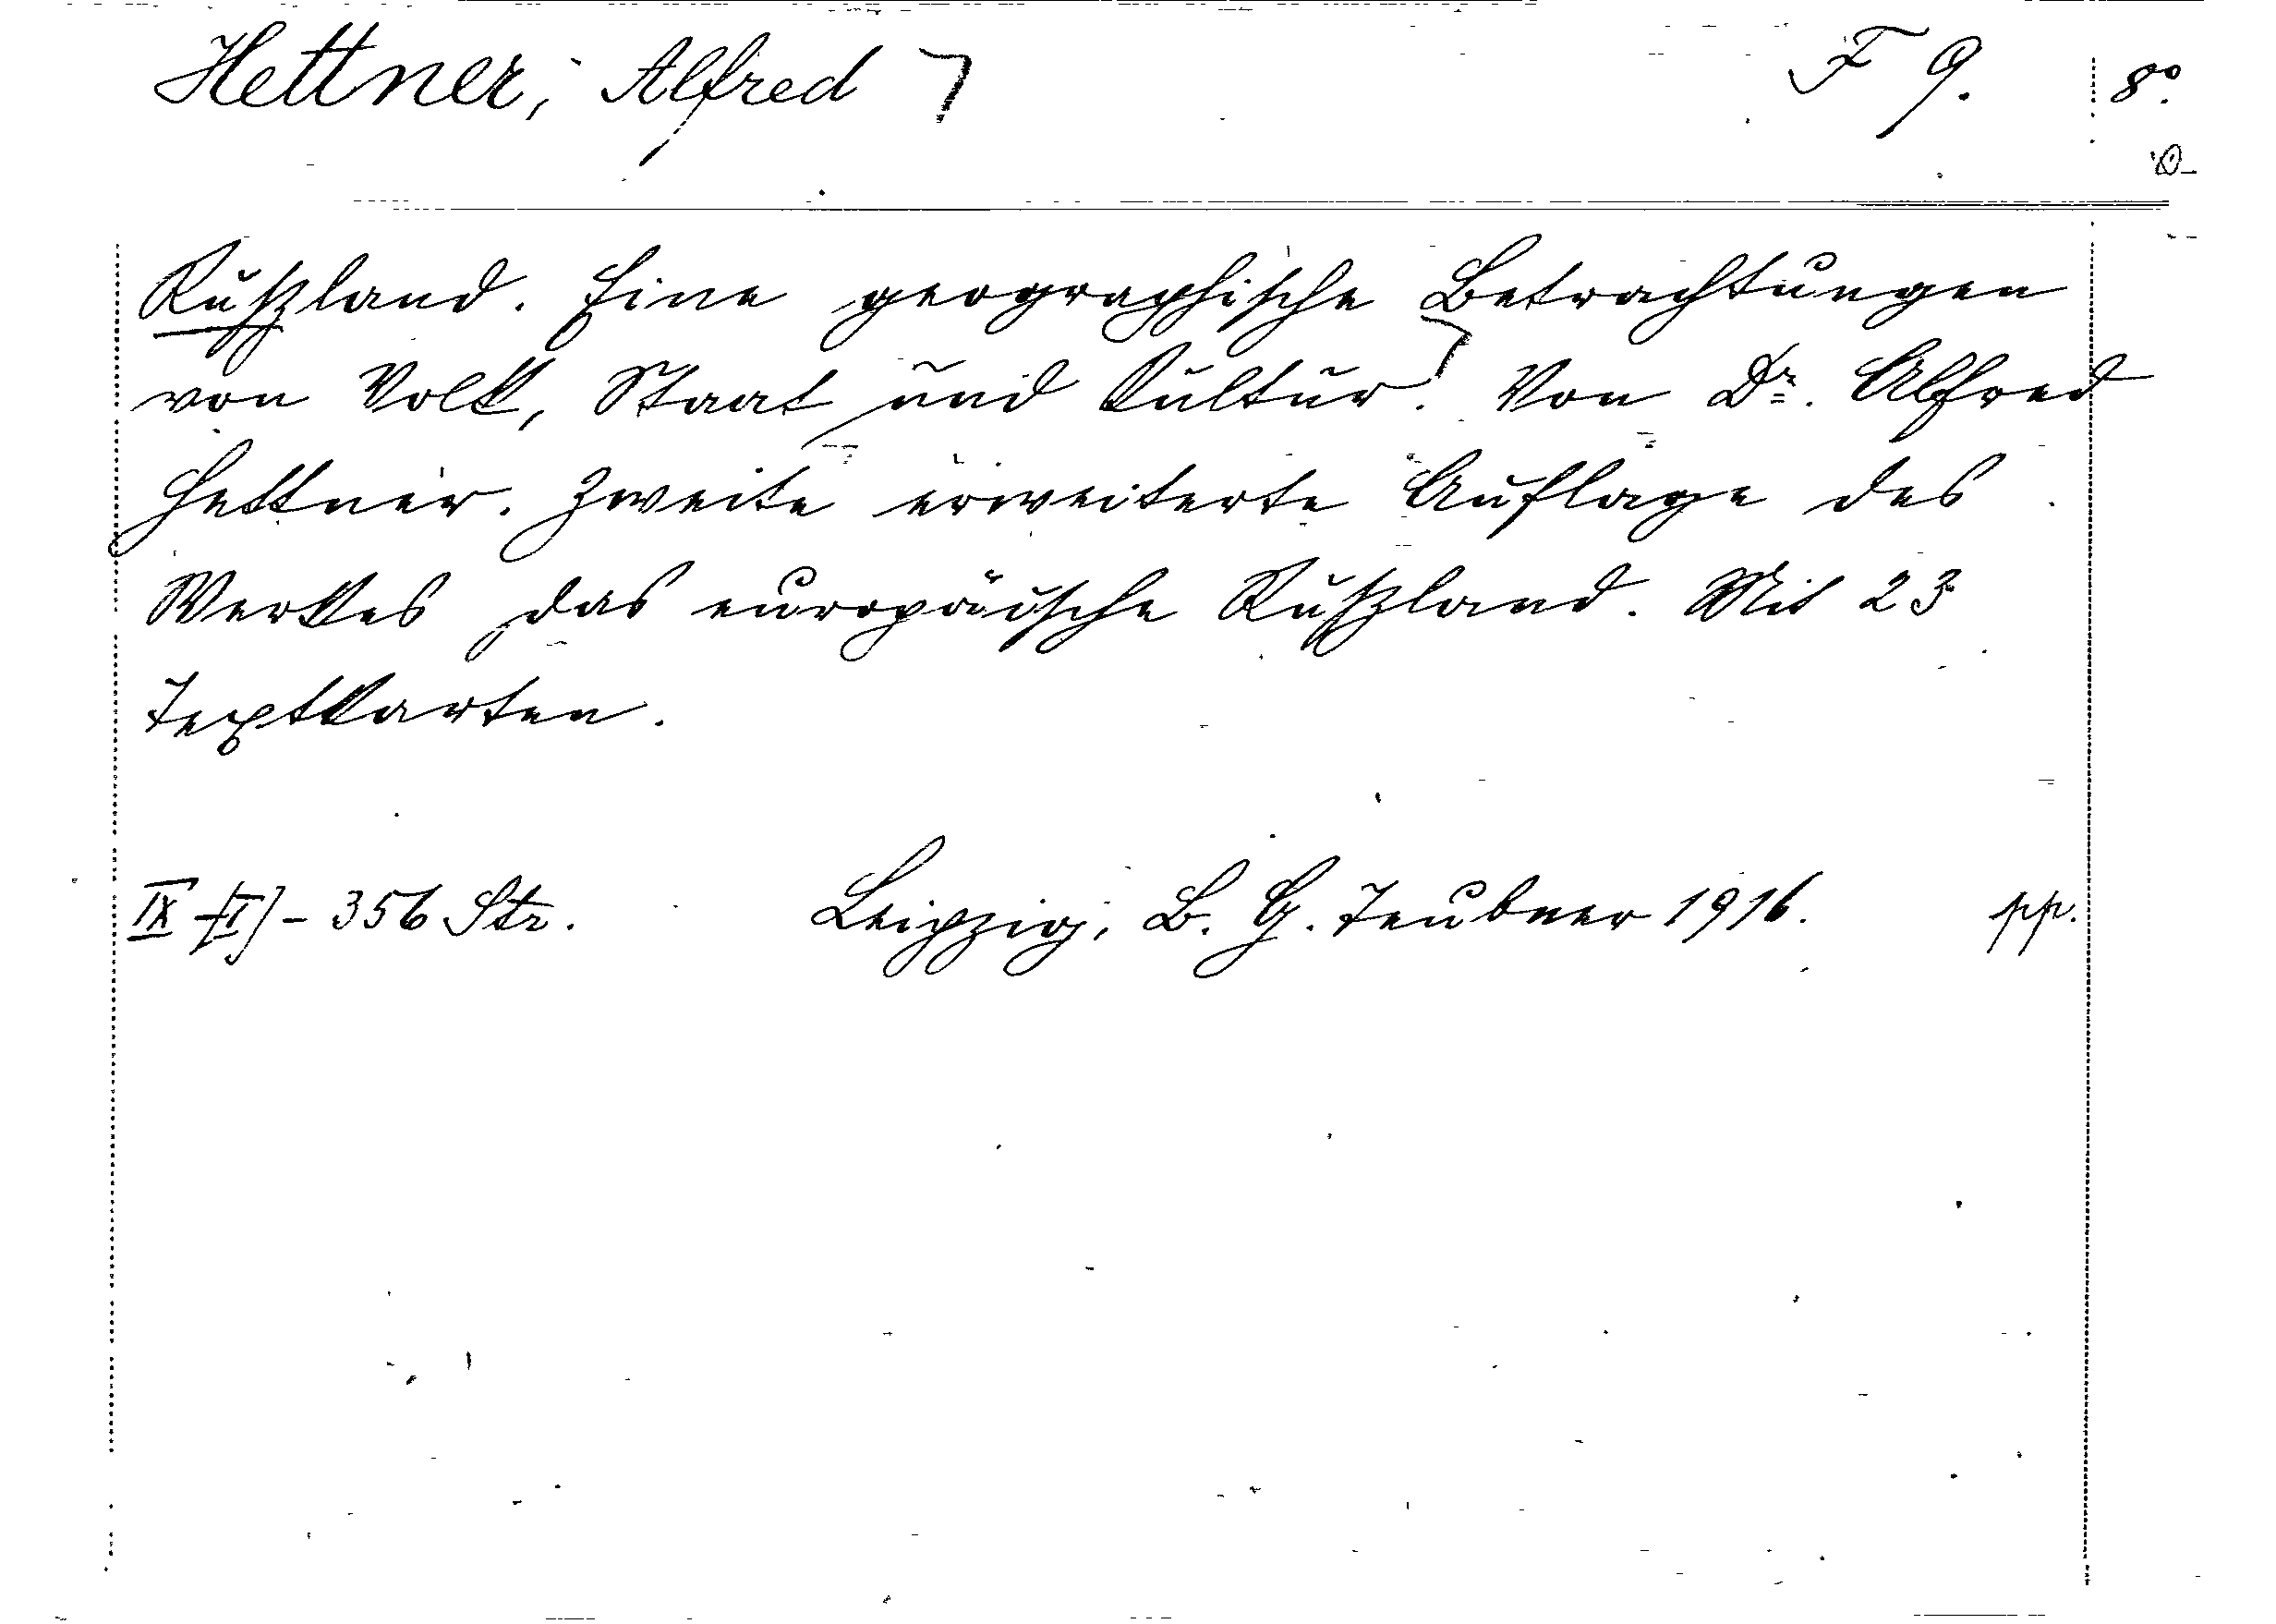 Hettner, Alfred F 9. 8°.
Rußland. Eine geographische Betrachtungen
von Volk, Staat und Kultur. Von Dr. Alfred
Hettner. Zweite erweiterte Auflage des
Werkes das europäische Rußland. Mit 23
Textkarten.
IX-[I]-356 Str. Leipzig, B. G. Teubner 1916. pp.